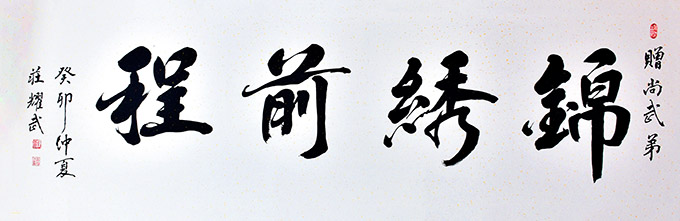 贈尚武弟
錦綉前程
癸卯仲夏
莊耀武